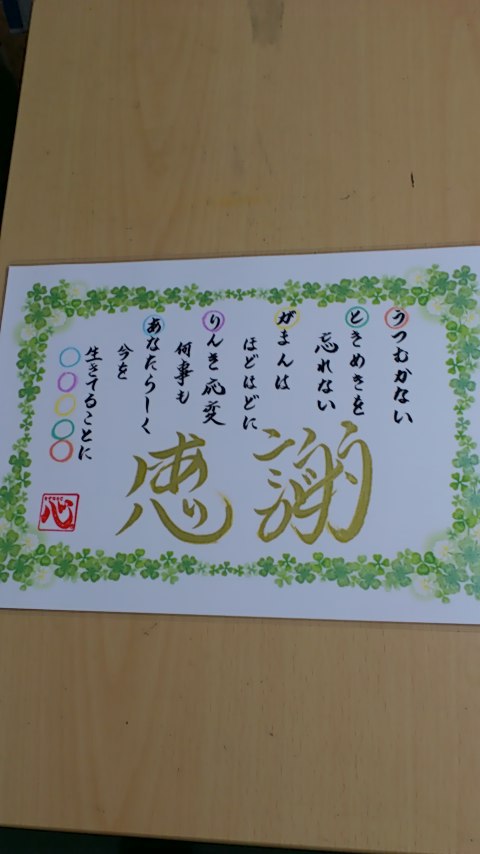 うつむかない
ときめきを
忘れない
がまんは
ほどほどに
りんき応変
何事も
あなたらしく
今を
生きてることに
感謝
心